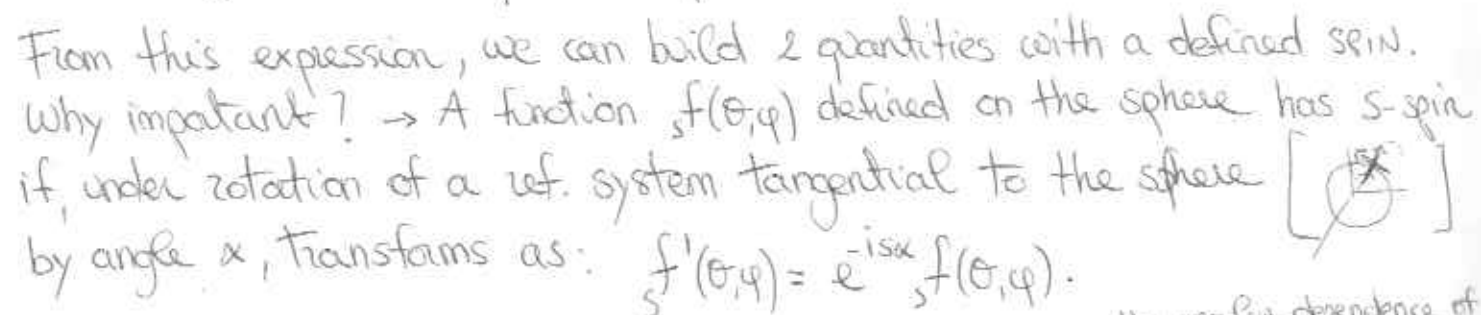 From this expression, we can build 2 quantities with a defined SPIN.
Why important? → A function ₛf(θ,φ) defined on the sphere has s-spin
if, under rotation of a ref. system tangential to the sphere [ ]
by angle α, transforms as: ₛf'(θ,φ) = e^{-isα} ₛf(θ,φ).
dependence of